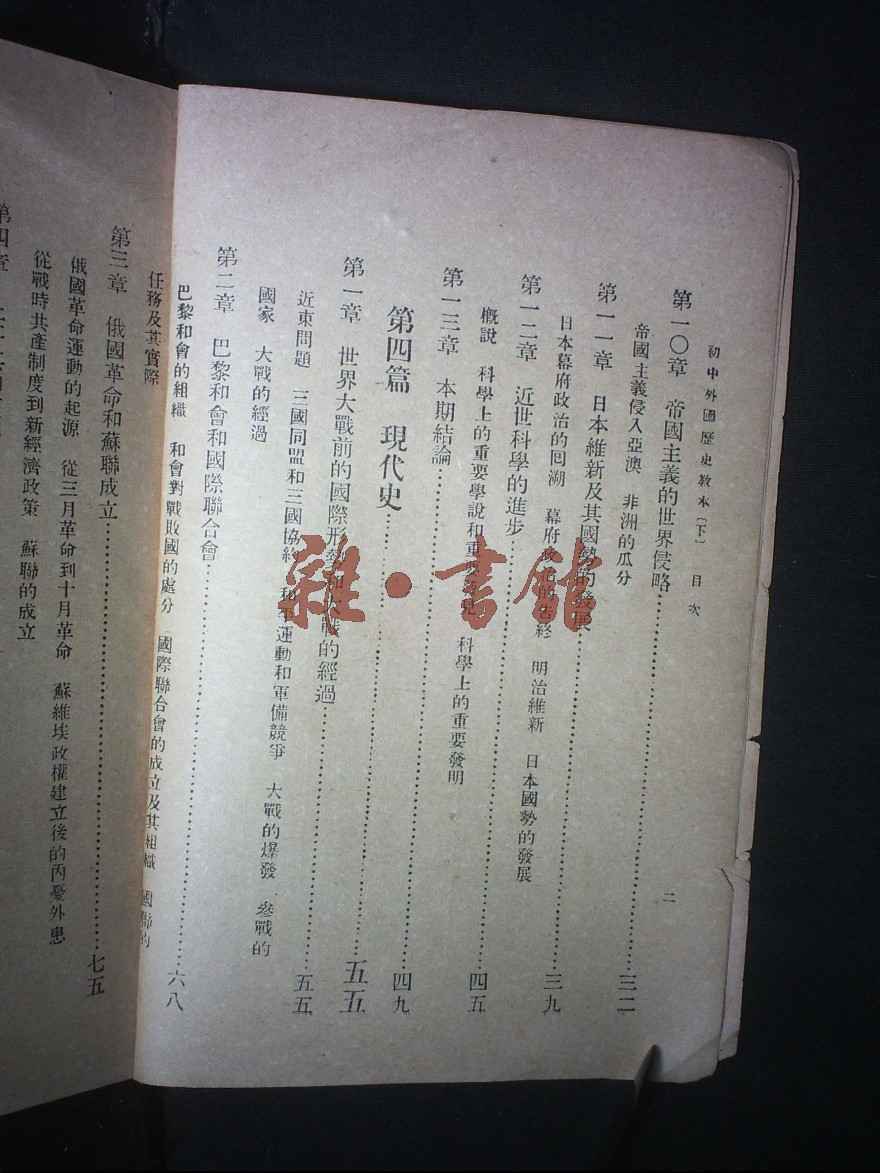 初中外國歷史教本〔下〕 目次
二
第一〇章 帝國主義的世界侵略……三二
帝國主義侵入亞澳 非洲的瓜分
第一一章 日本維新及其國勢的發展……三九
日本幕府政治的回溯 幕府政治的告終 明治維新 日本國勢的發展
第一二章 近世科學的進步……四五
概說 科學上的重要學說和重要發見 科學上的重要發明
第一三章 本期結論……四九
第四篇 現代史……五五
第一章 世界大戰前的國際形勢和大戰的經過……五五
近東問題 三國同盟和三國協約 和平運動和軍備競爭 大戰的爆發 參戰的
國家 大戰的經過
第二章 巴黎和會和國際聯合會……六八
巴黎和會的組織 和會對戰敗國的處分 國際聯合會的成立及其組織 國聯的
任務及其實際
第三章 俄國革命和蘇聯成立……七五
俄國革命運動的起源 從三月革命到十月革命 蘇維埃政權建立後的內憂外患
從戰時共產制度到新經濟政策 蘇聯的成立
第四章
雜·書館